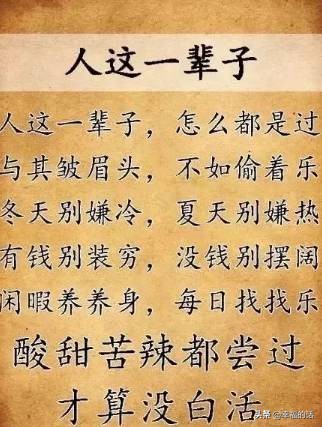 人这一辈子
人这一辈子，怎么都是过
与其皱眉头，不如偷着乐
冬天别嫌冷，夏天别嫌热
有钱别装穷，没钱别摆阔
闲暇养养身，每日找找乐
酸甜苦辣都尝过
才算没白活
头条 @幸福的话